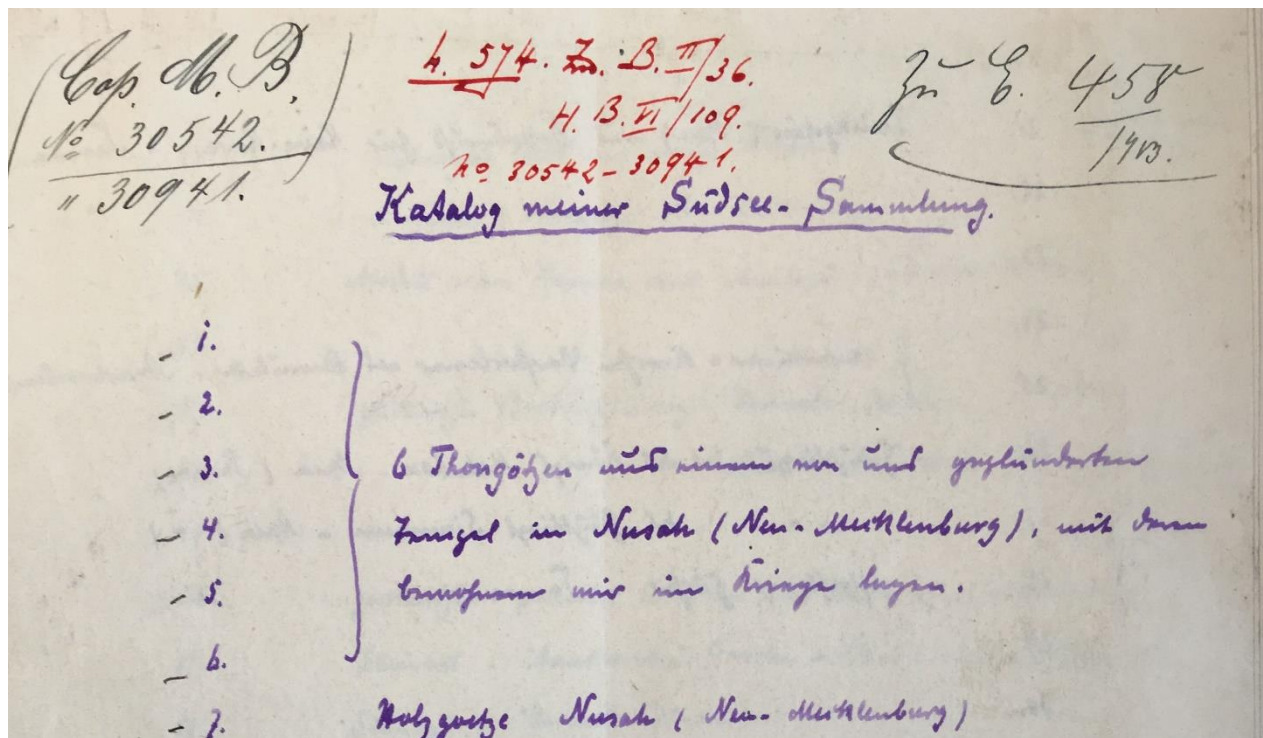 (Cop. M. B.
No 30542.
" 30941.)
h. 574. Zn. B. II/36.
H. B. VI/109.
no 30542 - 30941.
Zu E. 458
1913.
Katalog meiner Südsee-Sammlung.
1.
2.
3. 6 Thongötzen aus einem von uns geplünderten
4. Tempel in Nusah (Neu-Mecklenburg), mit deren
5. bewohnern wir im Kriege lagen.
6.
7. Holzgoetze Nusah (Neu-Mecklenburg)